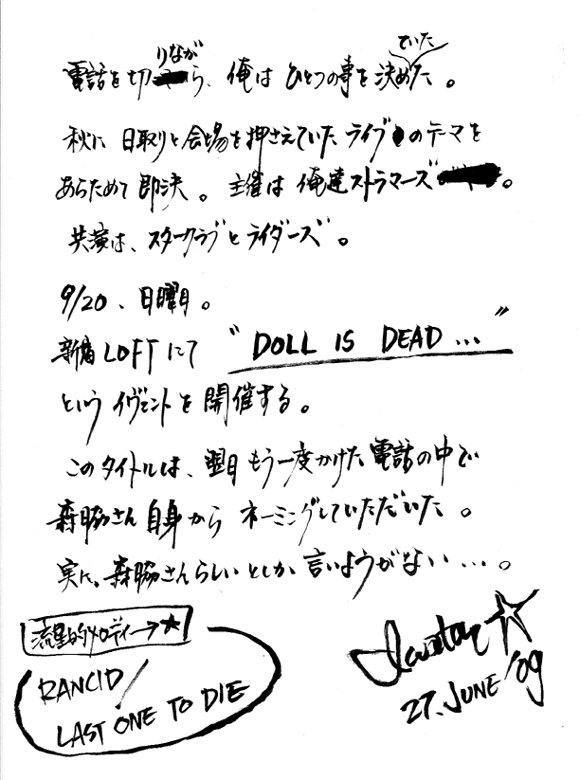 電話を切りながら、俺はひとつの事を決めていた。
秋に日取りと会場を押さえていたライブのテーマを
あらためて即決。主催は俺達ストラマーズ。
共演は、スタークラブとライダーズ。
9/20、日曜日。
新宿LOFTにて "DOLL IS DEAD..."
というイヴェントを開催する。
このタイトルは、翌日もう一度かけた電話の中で
森脇さん自身からネーミングしていただいた。
実に、森脇さんらしいとしか言いようがない…。
流星的メロディー→★
RANCID/
LAST ONE TO DIE
27.JUNE '09